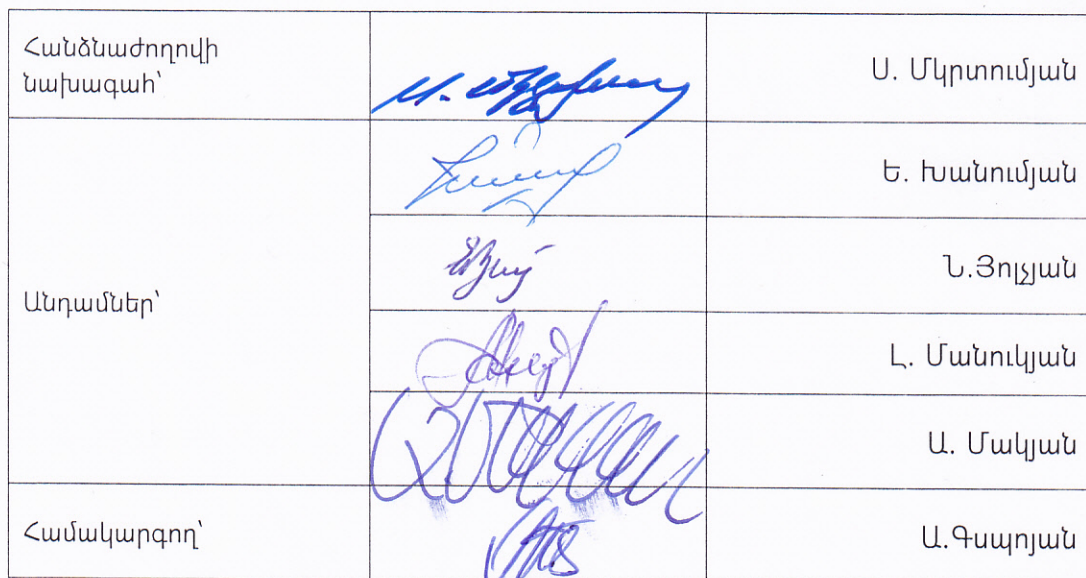 Հանձնաժողովի
նախագահ՝
Ս. Մկրտումյան
Անդամներ՝
Ե. Խանումյան
Ն.Յոլչյան
Լ. Մանուկյան
Ա. Մակյան
Համակարգող՝
Ա.Գսպոյան